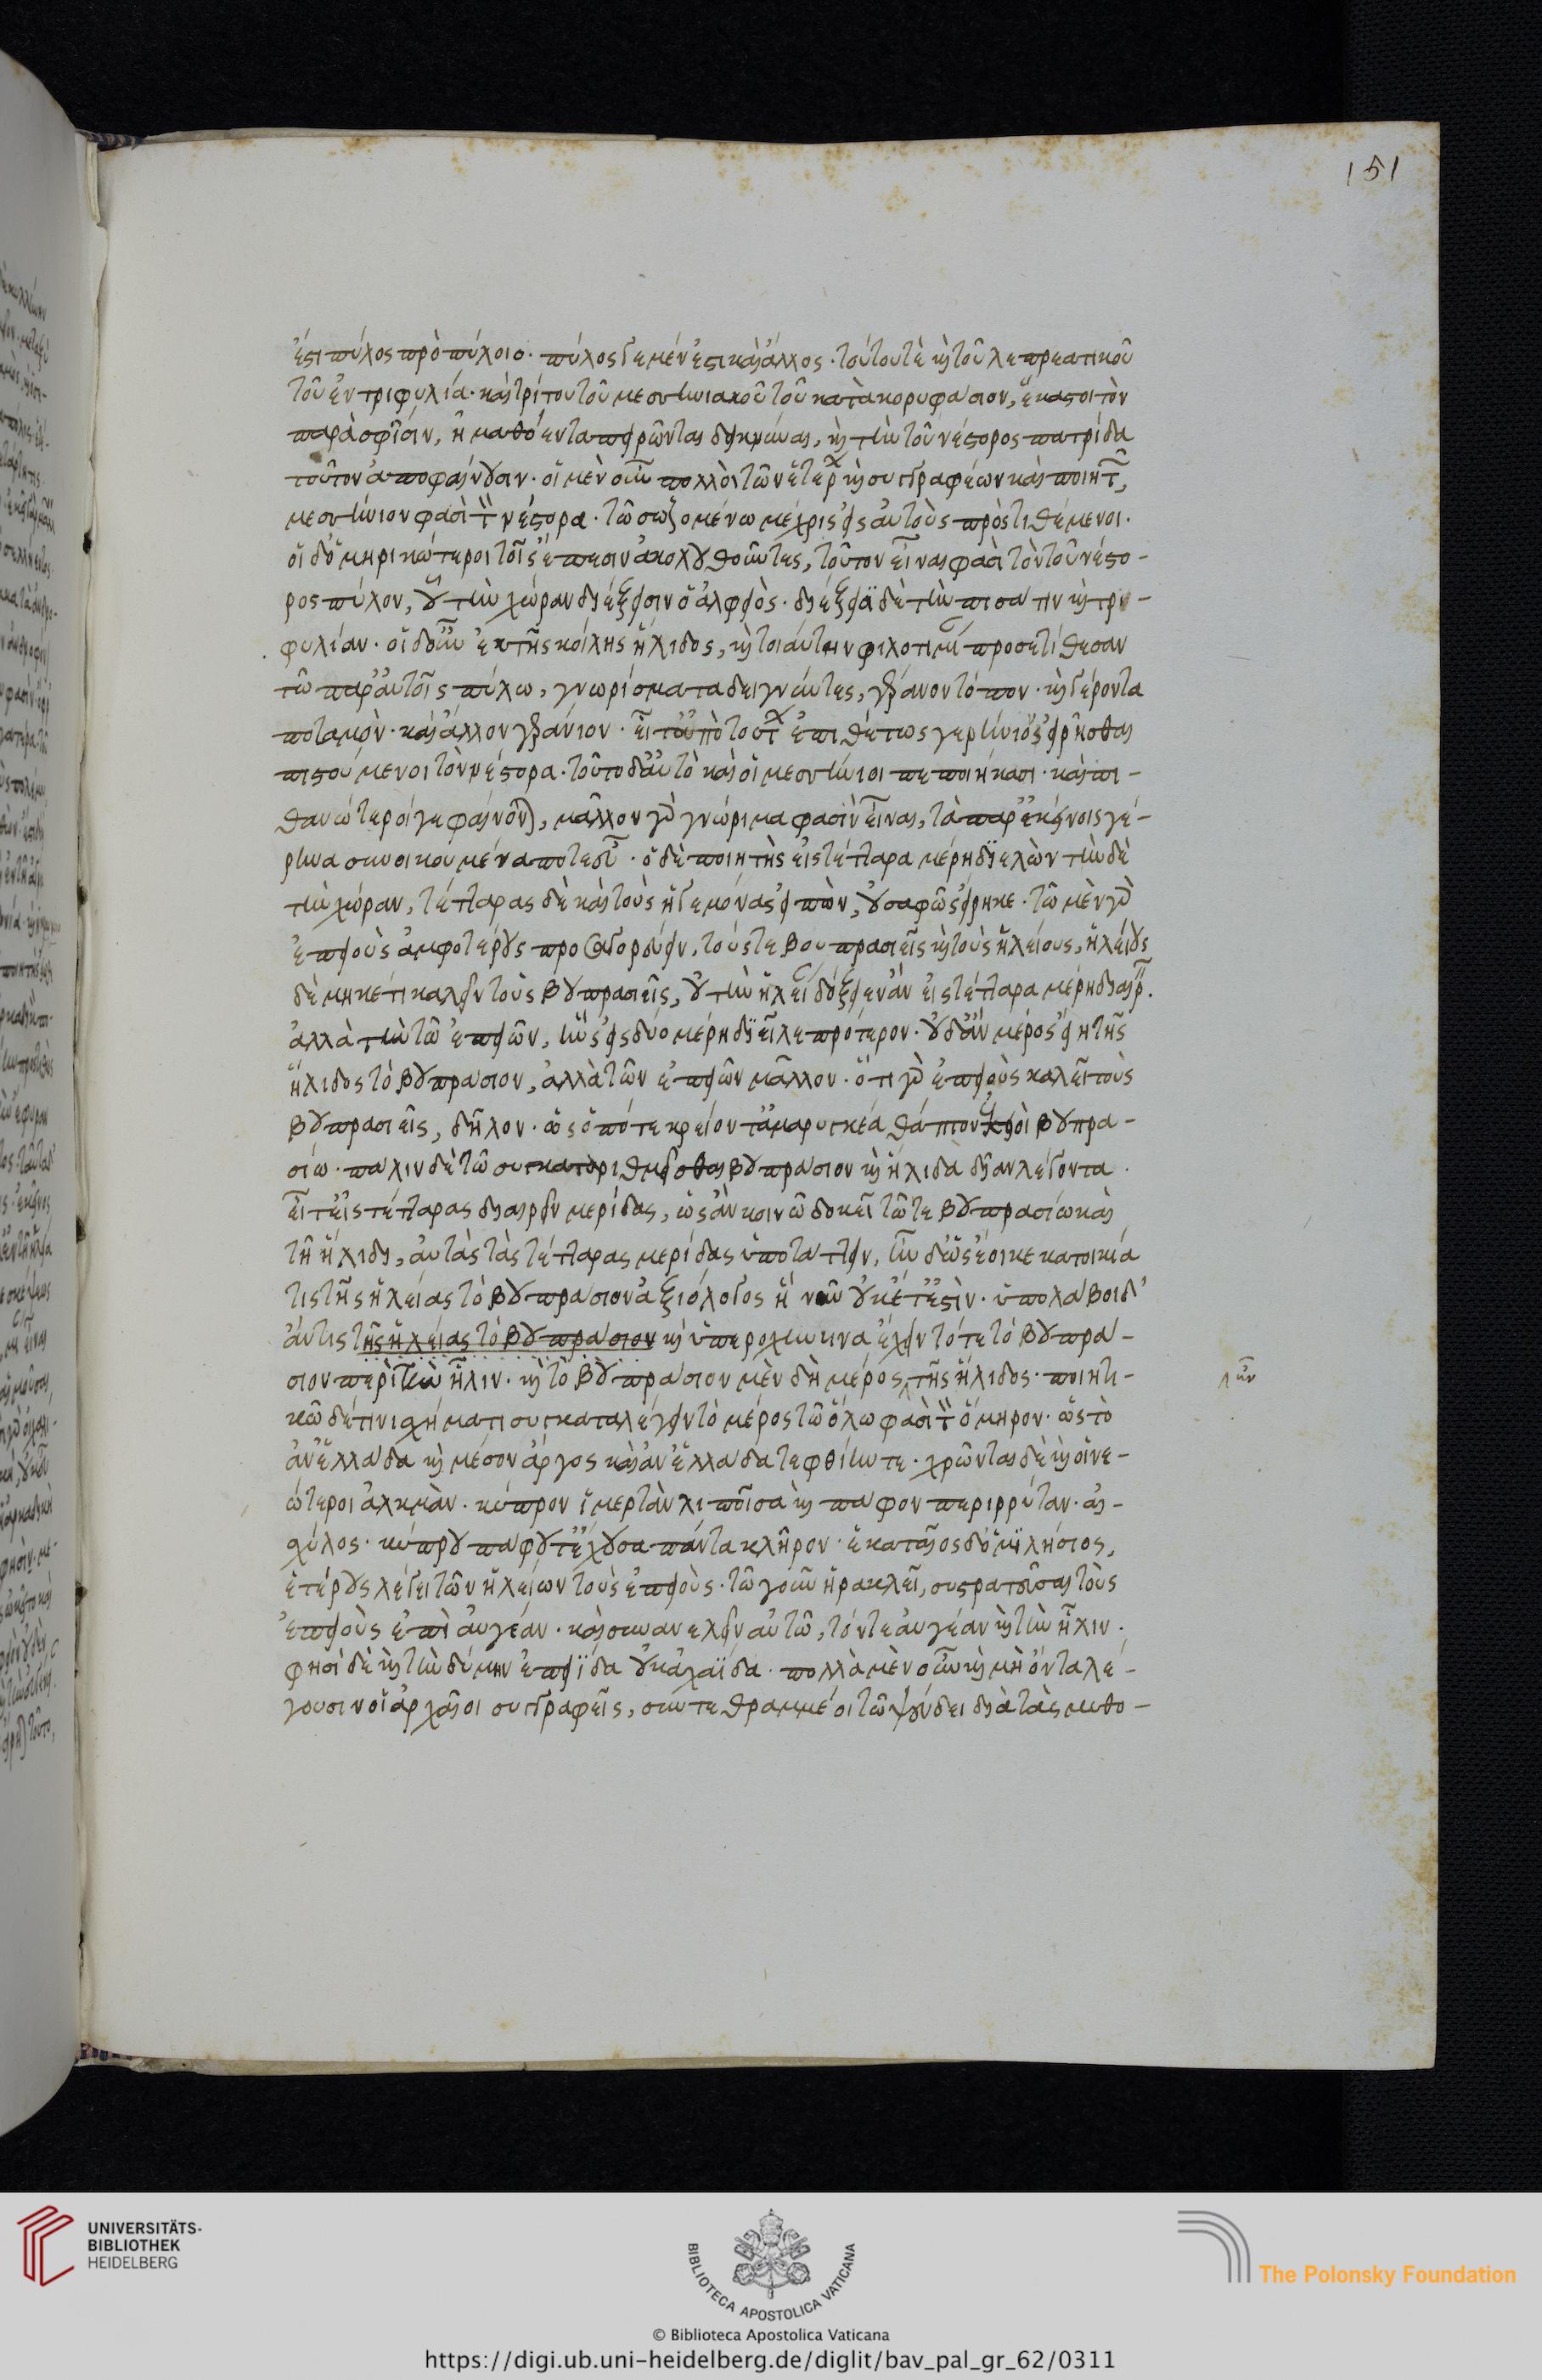 151
ἔστι πύλος πρὸ πύλοιο· πύλος γε μέν ἐστι καὶ ἄλλος· τούτου τὲ καὶ τοῦ λεπρεατικοῦ
τοῦ ἐν τριφυλία· καὶ τρίτου τοῦ μεσσηνιακοῦ τοῦ κατὰ κορυφάσιον, ἕκαστοι τὸν
παρὰ σφίσιν, ἠμαθόεντα πειρῶνται δεικνύναι, καὶ τὴν τοῦ νέστορος πατρίδα
τοῦτον ἀποφαίνουσιν· οἱ μὲν οὖν πολλοὶ τῶν ἑτέρων καὶ συγγραφέων καὶ ποιητῶν,
μεσσήνιον φασὶ τὸν νέστορα· τῶ σωζομένω μέχρις εἰς αὐτοὺς προστιθέμενοι·
οἱ δ' ὁμηρικώτεροι τοῖς ἔπεσιν ἀκολουθοῦντες, τοῦτον εἶναι φασὶ τὸν τοῦ νέστο-
ρος πύλον, οὗ τὴν χώραν διέξεισιν ὁ ἀλφειός· διέξεισι δὲ τὴν πισάτιν καὶ τρι-
φυλίαν· οἱ δ' οὖν ἐκ τῆς κοίλης ἤλιδος, καὶ τοιαύτην φιλοτιμίαν προσετίθεσαν
τῶ παρ' αὐτοῖς πύλω, γνωρίσματα δεικνύντες, γέρανον τόπον· καὶ γέροντα
ποταμὸν· καὶ ἄλλον γεράνιον· εἶτ' ἀπὸ τούτων ἐπιθέτως γερήνιον εἰρῆσθαι
πιστούμενοι τὸν νέστορα· τοῦτο δ' αὐτὸ καὶ οἱ μεσσήνιοι πεποιήκασι· καὶ πι-
θανώτεροί γε φαίνονται, μᾶλλον γὰρ γνώριμα φασὶν εἶναι, τὰ παρ' ἐκείνοις γέ-
ρηνα συνοικούμενα ποτε εὖ· ὁ δὲ ποιητὴς εἰς τέτταρα μέρη διελὼν τήνδε
τὴν χώραν, τέτταρας δὲ καὶ τοὺς ἡγεμόνας εἰπὼν, οὐ σαφῶς εἴρηκε· τῶ μὲν γὰρ
ἐπειοὺς ἀμφοτέρους προσαγορεύειν, τούς τε βουπρασιεῖς καὶ τοὺς ἠλείους, ἠλείους
δὲ μηκέτι καλεῖν τοὺς βουπρασιεῖς, οὐ τὴν ἠλείαν δόξειεν ἂν εἰς τέτταρα μέρη διαιρεῖν.
ἀλλὰ τὴν τῶ ἐπειῶν, ἣν εἰς δύο μέρη διεῖλε πρότερον· οὐδ' ἂν μέρος εἴη τῆς
ἤλιδος τὸ βουπράσιον, ἀλλὰ τῶν ἐπειῶν μᾶλλον· ὅτι γὰρ ἐπειοὺς καλεῖ τοὺς
βουπρασιεῖς, δῆλον· ὡς ὁπότε κρείοντ' ἀμαρυγκέα θάπτον ἐπειοὶ βουπρα-
σίω· πάλιν δὲ τῶ συγκαταριθμεῖσθαι βουπράσιον καὶ ἤλιδα δῖαν λέγοντα·
εἶτ' εἰς τέτταρας διαιρεῖν μερίδας, ὡς ἂν κοινῶ δοκεῖ τῶ τε βουπρασίω καὶ
τῆ ἤλιδι, αὐτὰς τὰς τέτταρας μερίδας ὑποτάττειν, ἦν δ' ὡς ἔοικε κατοικία
τις τῆς ἠλείας τὸ βουπράσιον ἀξιόλογος ἣ νῦν οὐκέτ' ἐστὶν· ὑπολάβοι δ'
ἄν τις τῆς ἠλείας τὸ βουπράσιον καὶ ὑπεροχήν τινα ἔχειν τότε τὸ βουπρά-
σιον περὶ τὴν ἦλιν· καὶ τὸ βουπράσιον μὲν δὴ μέρος τῆς ἤλιδος· ποιητι-
κῶ δέ τινι σχήματι συγκαταλέγειν τὸ μέρος τῶ ὅλω φασὶ τὸν ὅμηρον· ὡς τὸ
ἀν' ἑλλάδα καὶ μέσον ἄργος καὶ ἀν' ἑλλάδα τε φθίην τε· χρῶνται δὲ καὶ οἱ νε-
ώτεροι ἀλκμὰν· κύπρον ἱμερτὰν λιποῖσα καὶ πάφον περιρρύταν· αἰ-
σχύλος· κύπρου πάφου τ' ἔχουσα πάντα κλῆρον· ἑκαταῖος δ' ὁ μιλήσιος,
ἑτέρους λέγει τῶν ἠλείων τοὺς ἐπειοὺς· τῶ γοῦν ἡρακλεῖ, συστρατεῦσαι τοὺς
ἐπειοὺς ἐπὶ αὐγέαν· καὶ συνανελεῖν αὐτῶ, τόν τε αὐγέαν καὶ τὴν ἦλιν·
φησὶ δὲ καὶ τὴν δύμην ἐπειΐδα οὐκ ἀχαΐδα· πολλὰ μὲν οὖν καὶ μὴ ὄντα λέ-
γουσιν οἱ ἀρχαῖοι συγγραφεῖς, συντεθραμμένοι τῶ ψεύδει διὰ τὰς μυθο-
UNIVERSITÄTS-
BIBLIOTHEK
HEIDELBERG
BIBLIOTECA APOSTOLICA VATICANA
The Polonsky Foundation
© Biblioteca Apostolica Vaticana
https://digi.ub.uni-heidelberg.de/diglit/bav_pal_gr_62/0311